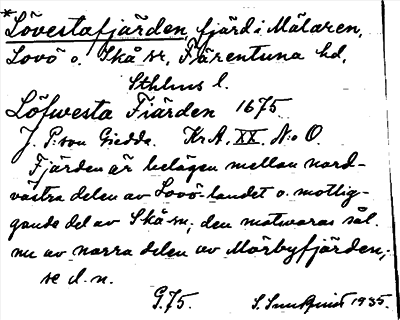 *Lövestafjärden fjärd i Mälaren,
Lovö o. Skå sr, Färentuna hd,
Sthlms l.
Löfwesta Fiärden 1675
J. P:son Giedda. KrA. XX. N:o O.
Fjärden är belägen mellan nord-
västra delen av Lovö-landet o. motlig-
gande del av Skå sn; den motsvaras sål.
nu av norra delen av Mörbyfjärden,
se d. n.
G.75. S. Sundquist 1935.